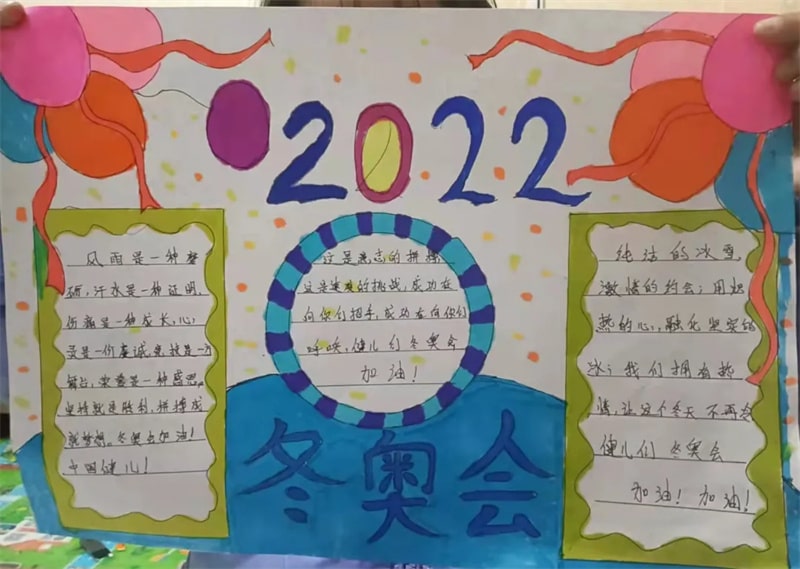 2022
风雨是一种磨
砺,汗水是一种证明,
伤痛是一种成长,心
灵是一份虔诚,竞技是一
舞台,荣誉是一种感恩,
坚持就是胜利,拼搏成
就梦想。冬奥会加油!
中国健儿!
这是意志的拼搏
这是速度的挑战,成功在
向你们招手,成功在向你们
呼唤,健儿们冬奥会
加油!
纯洁的冰雪,
激情的约会;用炽
热的心,融化坚实的
冰;我们拥有热
情,让这个冬天不再冷
健儿们冬奥会
加油!加油!
冬奥会